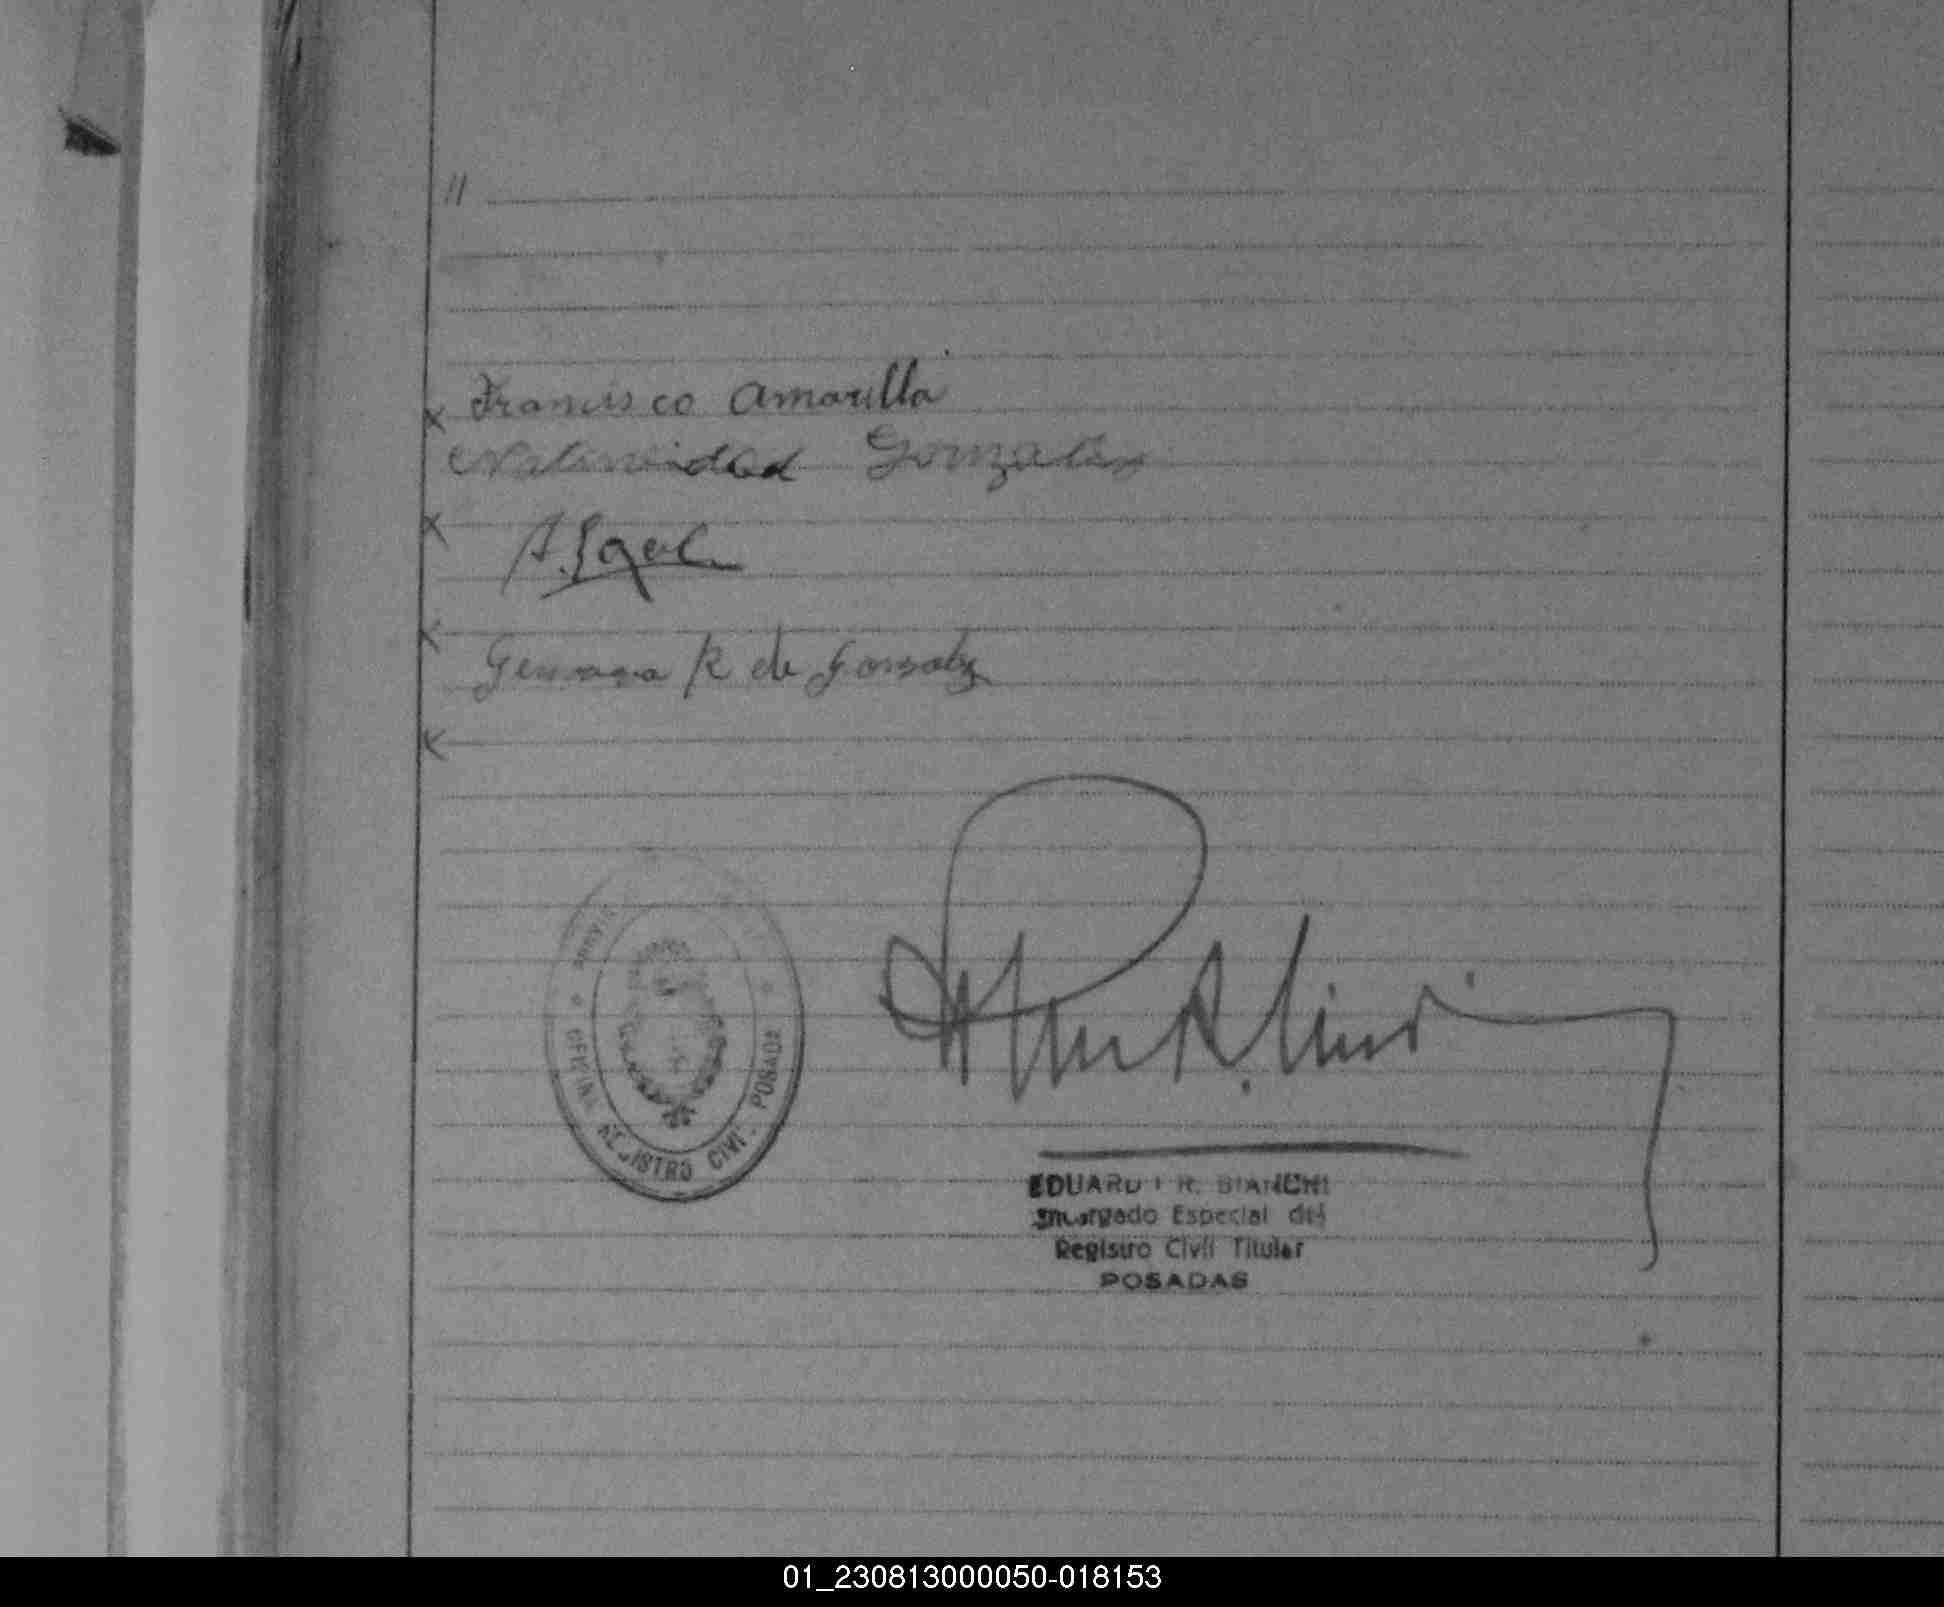 //
x Francisco Amarilla
Natividad Gonzalez
x
x
Germana R de Gonzalez
x
OFICINA REGISTRO CIVIL POSADAS
EDUARDO R. BIANCHI
Encargado Especial del
Registro Civil Titular
POSADAS
01_230813000050-018153